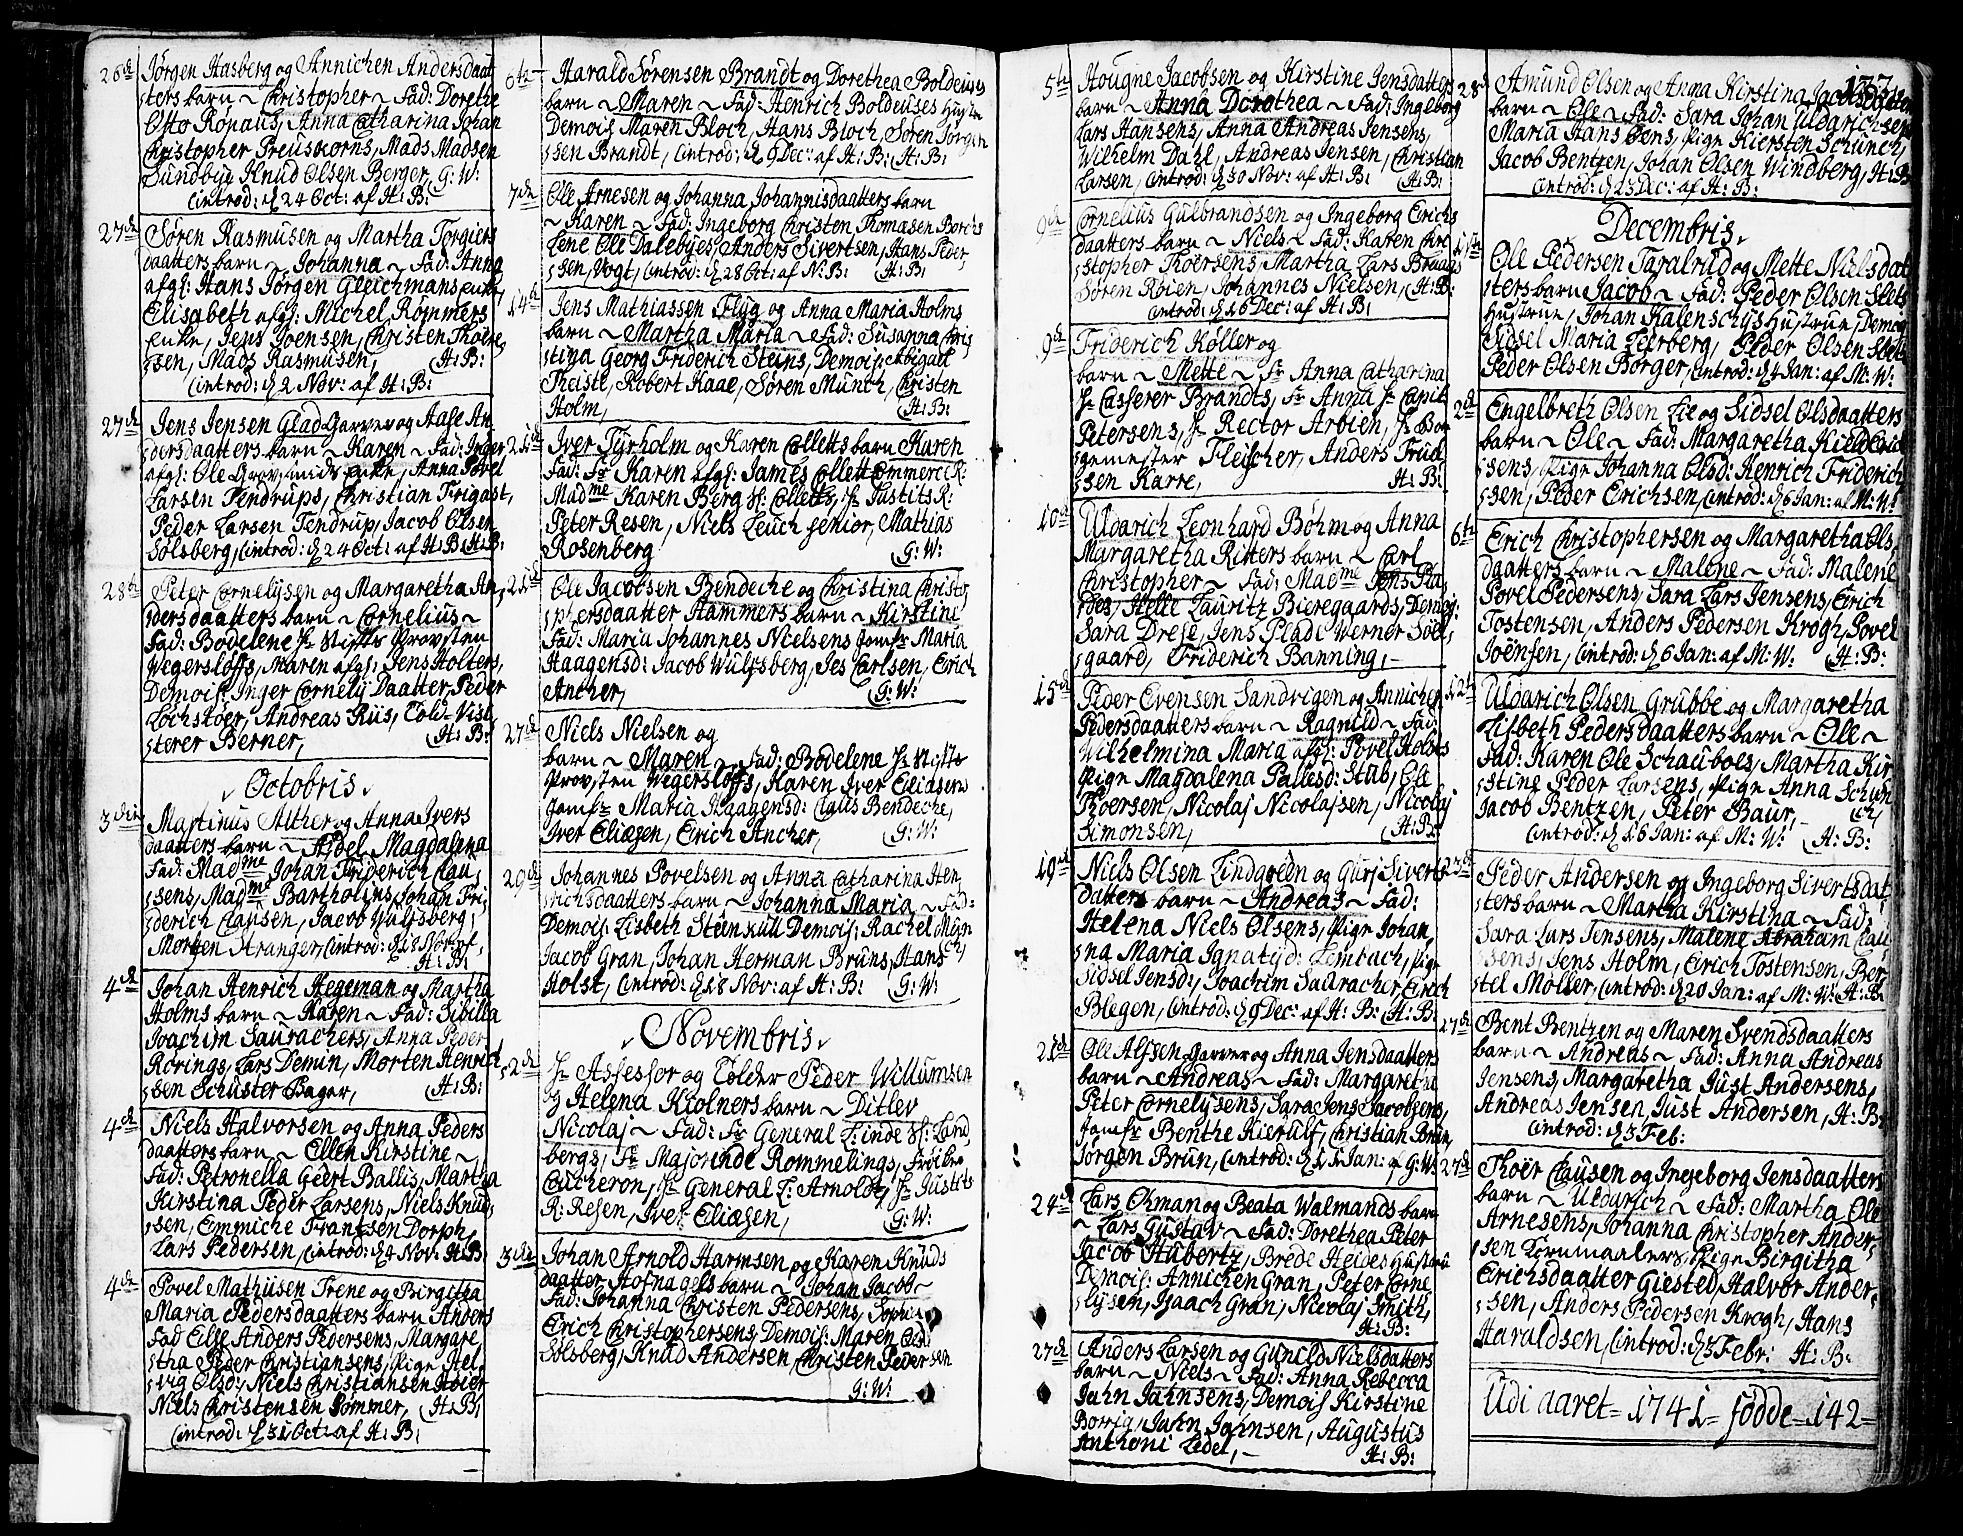 26de Jørgen Hasberg og Annichen Andersdaat
sters barn ~ Christopher ~ Fad: Dorethe
Otto Ropaus, Anna Catharina Johan
Christopher Preuskorns, Mads Madsen
Sundbye Knud Olsen Berger, G: W:
Introd: d 24 Oct: af H: B:
27de Søren Rasmusen og Martha Torgiers
daatters barn ~ Johanna ~ Fad: Anna
afgl: Hans Jørgen Gleichmans enke,
Elisabeth afgl: Michel Rømmers
enke, Jens Joensen, Christen Thoere,
sen, Mads Rasmusen, H: B:
Introd: d 2 Nov: af H: B:
27de Jens Jensen Glad Garver og Aase An,
dersdaatters barn ~ Karen ~ Fad: Inger
afgl: Ole Grovsmids Enke, Anna Povel
Larsen Tendrups, Christian Frigast,
Peder Larsen Tendrup, Jacob Olsen
Solsberg, Introd: d 24 Oct: af H: B: H: B:
28de Peter Cornelysen og Margaretha An,
dersdaatters barn ~ Cornelius ~
Fad: Bodelene Hr Stifts Provsten
Wegersløffs, Maren afgl: Jens Holters,
Demois: Inger Cornely Daatter, Peder
Lochstøer, Andreas Riis, Told-Visi,
sterer Berner, H: B:
Octobris
3die Martinus Alther og Anna Ivers
daatters barn ~ Aidel Magdalina
Fad: Madme Johan Friderich Clau,
sens, Madme Bartholins, Johan Fri,
derich Clausen, Jacob Wulfsberg,
Morten Stranger, Introd: d 18 Nov: af
H: B:
4de Johan Henrich Hegeman og Martha
Holms barn ~ Karen ~ Fad: Sibilla
Joachim Saurachers, Anna Peder
Rørings, Lars Demin, Morten Henrich
sen Schuster Bager, H: B:
4de Niels Halvorsen og Anna Peders
daatters barn ~ Ellen Kirstine ~,
Fad: Petronella Geert Ballis, Martha
Kirstina Peder Larsens, Niels Knud,
sen, Emmiche Frantzen Dorph,
Lars Pedersen, Introd: d 4 Nov: H: B:
4de Povel Mathiisen Trene og Birgitha
Maria Pedersdaatters barn Anders
Fad Else Anders Pedersens, Margare
tha Peder Christiansens, Pige Hel,
vig Olsd: Niels Christiansen Høier
Niels Christensen Sommer, H: B:
Introd: d 31 Oct: af H: B:
6te Harald Sørensen Brandt og Dorethea Boldeuses
barn ~ Maren ~ Fad: Henrich Boldeuses Hustrue
Demois: Maren Bloch, Hans Bloch, Søren Jørgen
sen Brandt, Introd: d 9 Dec: af H: B: H: B:
7de Ole Arnesen og Johanna Johannisdaatters barn
~ Karen ~ Fad: Ingeborg Christen Thomasen Borchs
Lene Ole Dalebyes, Anders Sivertsen, Hans Peder,
sen, Vogt, Introd: d 28 Oct: af N: B: H: B:
14de Jens Mathiassen Flyg og Anna Maria Holms
barn ~ Martha Maria ~ Fad: Susanna Chris
tina Georg Friderich Steins, Demois: Abigael
Theiste, Robert Kaae, Søren Munch, Christen
Holm, H: B:
21de Iver Tyrholm og Karen Colletts barn Karen
Fad: Fr Karen afgl: James Collett Commerce R:
Madme Karen Berg Sl: Colletts, Hr Justits R:
Peter Resen, Niels Leuch senior, Mathias
Rosenberg G: W:
21de Ole Jacobsen Bendeche og Christina Christo,
phersdaatter Hammers barn ~ Kirstine
Fad: Maria Johannes Nielsens Jomfr Maria
Haagensd: Jacob Wulfsberg, Jes Carlsen, Erich
Ancher, G: W:
27de Niels Nielsen og
barn ~ Maren ~ Fad: Bodelene Hr Stifts
Provsten Wegersløffs, Karen Iver Eliæsens
Jomfr Maria Haagensd: Claus Bendeche,
Iver Eliæsen, Erich Ancher, G: W:
29de Johannes Povelsen og Anna Catharina Hen,
richsdaatters barn ~ Johanna Maria ~ Fad:
Demois: Lisbeth Steenkull Demois: Rachel Mün
Jacob Gran, Johan Herman Bruns, Hans ch,
Holst, Introd: d 18 Nov: af H: B: G: W:
Novembris
2de Hr Assessor og Tolder Peder Willumsen
og Helena Kiølners barn ~ Ditlev
Nicolaj ~ Fad: Fr General L:inde Sl: Land
bergs, Fr Majorinde Rommelings, Frøiken
Coucheron, Hr General L: Arnoldt, Hr Justits
R: Resen, Iver Eliæsen, G: W:
3die Johan Arnold Harmsen og Karen Knuds
daatter Hofnagels barn ~ Johan Jacob ~
Fad: Johanna Christen Pedersens, Sophia
Erich Christophersens, Demois: Maren
Solsberg, Knud Andersen, Christen Pedersen
G: W:
5te Hougne Jacobsen og Kirstine Jensdatters
barn ~ Anna Dorothea ~ Fad: Ingeborg
Lars Hansens, Anna Andreas Jensens,
Wilhelm Dahl, Andreas Jensen, Christian
Larsen, Introd: d 30 Nov: af H: B: H: B:
9de Cornelius Gulbrandsen og Ingeborg Erichs
daatters barn ~ Niels ~ Fad: Karen Chri
stopher Thoersens, Martha Lars Braads
Søren Roien, Johannes Nielsen, H: B:
Introd: d 16 Dec: af H: B:
9de Friderich Koller og
barn ~ Mette ~ Fr Anna Catharina
Hr Casserer Brandts, Fr Anna Hr Capit
Petersens, Hr Rector Arbien, Hr Bor
gemester Fleischer, Anders Trud
sen Karre, H: B:
10de Uldarich Leonhard Bøhm og Anna
Margaretha Ritters barn ~ Carl
Christopher ~ Fad: Madme Jens Pla
des, Helle Lauritz Bieregaards, Demois:
Sara Drese, Jens Plade Werner Søle
gaard, Friderich Banning, ~
15de Peder Evensen Sandvigen og Annichen
Pedersdaatters barn ~ Ragnild ~ Fad:
Wilhelmina Maria afgl: Povel Holsts
Pige Magdalena Pallesd: Stub, Ole
Roersen, Nicolaj Nicolajsen, Nicolaj
Simonsen, H: B:
19de Niels Olsen Lindgreen og Gurj Siverts
datters barn ~ Andreas ~ Fad:
Helena Niels Olsens, Pige Johan,
na Maria Ignatyd: Lembach, Pige
Sidsel Jensd: Joachim Sauracher, Erich
Blegen, Introd: d 9 Dec: af H: B: H: B:
21de Ole Alfsen Garver og Anna Jensdaatters
barn ~ Andreas ~ Fad: Margaretha
Peter Cornelysens, Sara Jens Jacobsens,
Jomfr Benthe Kierulf, Christian Brün,
Jørgen Brün, Introd: d 11 Jan: af G: W:
24de Lars Ekman og Beata Walmands barn
~ Lars Gustav ~ Fad: Dorethea Peter
Jacob Hübertz, Brede Heides Hustru
Demois: Annichen Gran, Peter Corne
lysen, Isaach Gran, Nicolaj Smith,
H: B:
27de Anders Larsen og Gunild Nielsdatters
barn ~ Niels ~ Fad: Anna Rebecca
Jahn Jahnsens, Demois Kirstine
Borrig, Jahn Jahnsen, Augustus
Anthoni Ledel, ~ H: B:
137.
28de Amund Olsen og Anna Kirstina Jacobsdatters
barn ~ Ole ~ Fad: Sara Johan Uldarichsens
Maria Hans Oens, Pige Kiersten Schunch,
Jacob Bentzen, Johan Olsen Windberg, H: B:
Introd: d 23 Dec: af H: B:
Decembris
1ste Ole Pedersen Taralrud og Mette Nielsdat
sters barn Jacob ~ Fad: Peder Olsen Slets
Hustrue, Johan Kalenschijs Hustrue, Demois
Sidsel Maria Leerberg, Peder Olsen Slets
Peder Olsen Borger, Introd: d 4 Jan: af M: W:
2de Engelbreth Olsen Lie og Sidsel Olsdaatters
barn ~ Ole ~ Fad: Margaretha Kield Erich
sens, Pige Johanna Olsd: Henrich Friderich
sen, Peder Erichsen, Introd: d 6 Jan: af M: W:
6te Erich Christophersen og Margaretha Ols,
daatters barn ~ Malene ~ Fad: Malene
Povel Pedersens, Sara Lars Jensens, Erich
Tostensen, Anders Pedersen Krogh, Povel
Joënsen, Introd: d 6 Jan: af M: W: H: B:
12te Uldarich Olsen Grubbe og Margaretha
Lisbeth Pedersdaatters barn ~ Ole ~
Fad: Karen Ole Schaubols, Martha Kir
stine Peder Larsens, Pige Anna Schün
Jacob Bentzen, Peter Baur, ~ ch,
Introd: d 16 Jan: af M: W: H: B:
23de Peder Andersen og Ingeborg Sivertsdat,
sters barn ~ Martha Kirstina ~ Fad:
Sara Lars Jensens, Malene Abraham Clau
sens, Jens Holm, Erich Tostensen, Ber
tel Møller, Introd: d 20 Jan: af M: W: H: B:
27de Bent Bentzen og Maren Svendsdaatters
barn ~ Andreas ~ Fad: Anna Andreas
Jensens, Margaretha Just Andersens,
Andreas Jensen, Just Andersen, H: B:
Introd: d 3 Feb:
27de Thoër Clausen og Ingeborg Jensdaatters
barn ~ Uldarich ~ Fad: Martha Ole
Arnesens, Johanna Christopher Ander,
sen Kornmaalers, Pige Birgitha
Erichsdaatter Giested, Halvor Ander,
sen, Anders Pedersen Krogh, Hans
Haraldsen, Introd: d 3 Febr: H: B:
Udi aaret = 1741 = fødde = 142 =